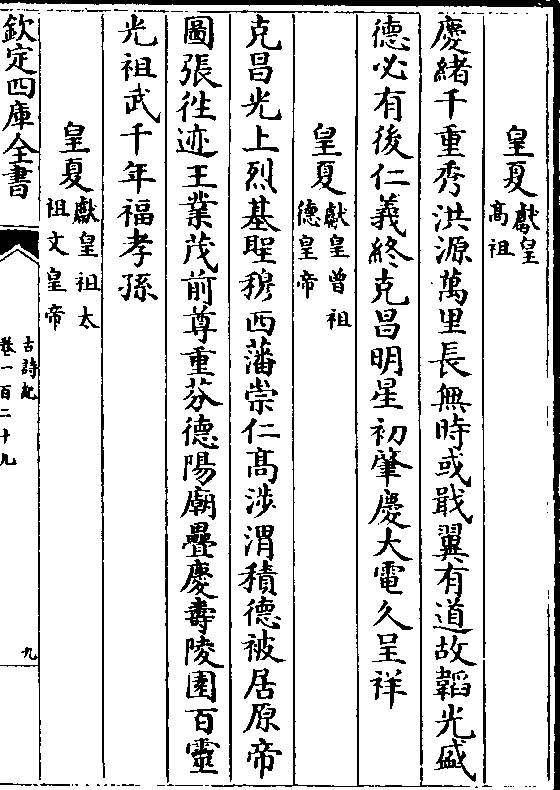 皇夏獻皇高祖
慶緒千重秀洪源萬里長無時或戢翼有道故韜光盛
德必有後仁義終克昌明星初肇慶大電久呈祥
皇夏獻皇曾祖德皇帝
克昌光上烈基聖穆西藩崇仁髙涉渭積德被居原帝
圖張往迹王業茂前尊重芬德陽廟疊慶壽陵園百靈
光祖武千年福孝孫
皇夏獻皇祖太祖文皇帝
欽定四庫全書
古詩紀
卷一百二十九
九